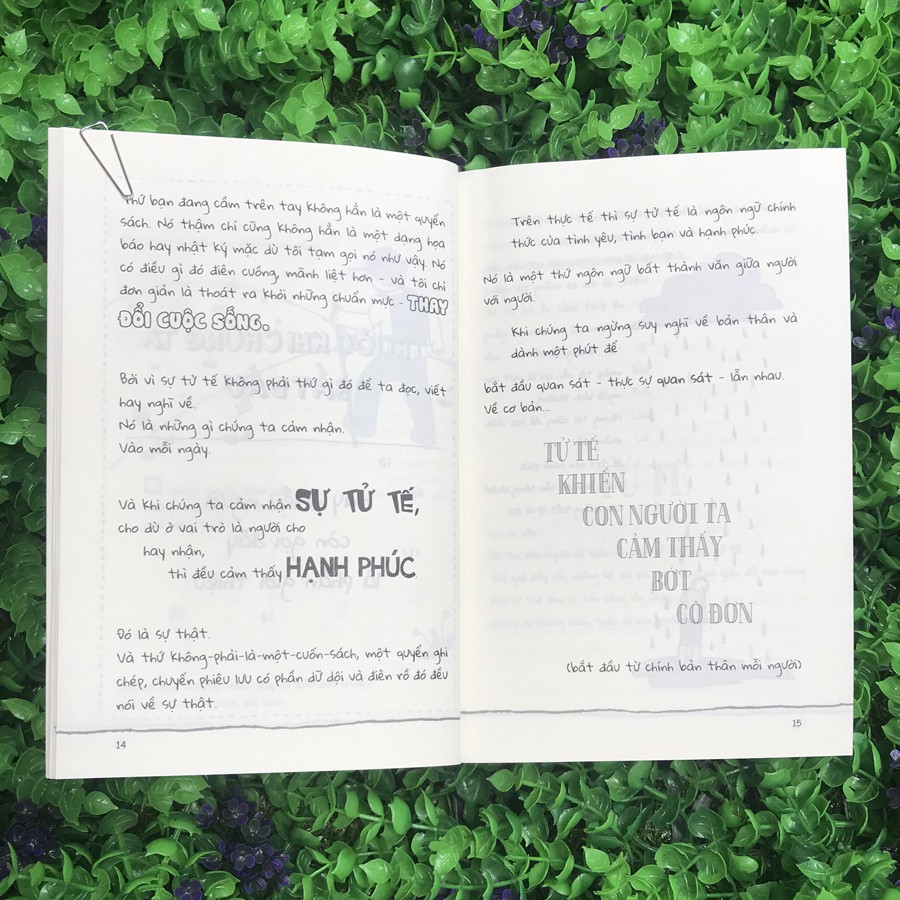 Thứ bạn đang cầm trên tay không hẳn là một quyển
sách. Nó thậm chí cũng không hẳn là một dạng họa
báo hay nhật ký mặc dù tôi tạm gọi nó như vậy. Nó
có điều gì đó điên cuồng, mãnh liệt hơn - và tôi chỉ
đơn giản là thoát ra khỏi những chuẩn mực - THAY
ĐỔI CUỘC SỐNG.
Bởi vì sự tử tế không phải thứ gì đó để ta đọc, viết
hay nghĩ về.
Nó là những gì chúng ta cảm nhận.
Vào mỗi ngày.
Và khi chúng ta cảm nhận SỰ TỬ TẾ,
cho dù ở vai trò là người cho
hay nhận,
thì đều cảm thấy HẠNH PHÚC.
Đó là sự thật.
Và thứ không-phải-là-một-cuốn-sách, một quyển ghi
chép, chuyến phiêu lưu có phần dữ dội và điên rồ đó đều
nói về sự thật.
14
Trên thực tế thì sự tử tế là ngôn ngữ chính
thức của tình yêu, tình bạn và hạnh phúc.
Nó là một thứ ngôn ngữ bất thành văn giữa người
với người.
Khi chúng ta ngừng suy nghĩ về bản thân và
dành một phút để
bắt đầu quan sát - thực sự quan sát - lẫn nhau.
Về cơ bản...
TỬ TẾ
KHIẾN
CON NGƯỜI TA
CẢM THẤY
BỚT
CÔ ĐƠN
(bắt đầu từ chính bản thân mỗi người)
15